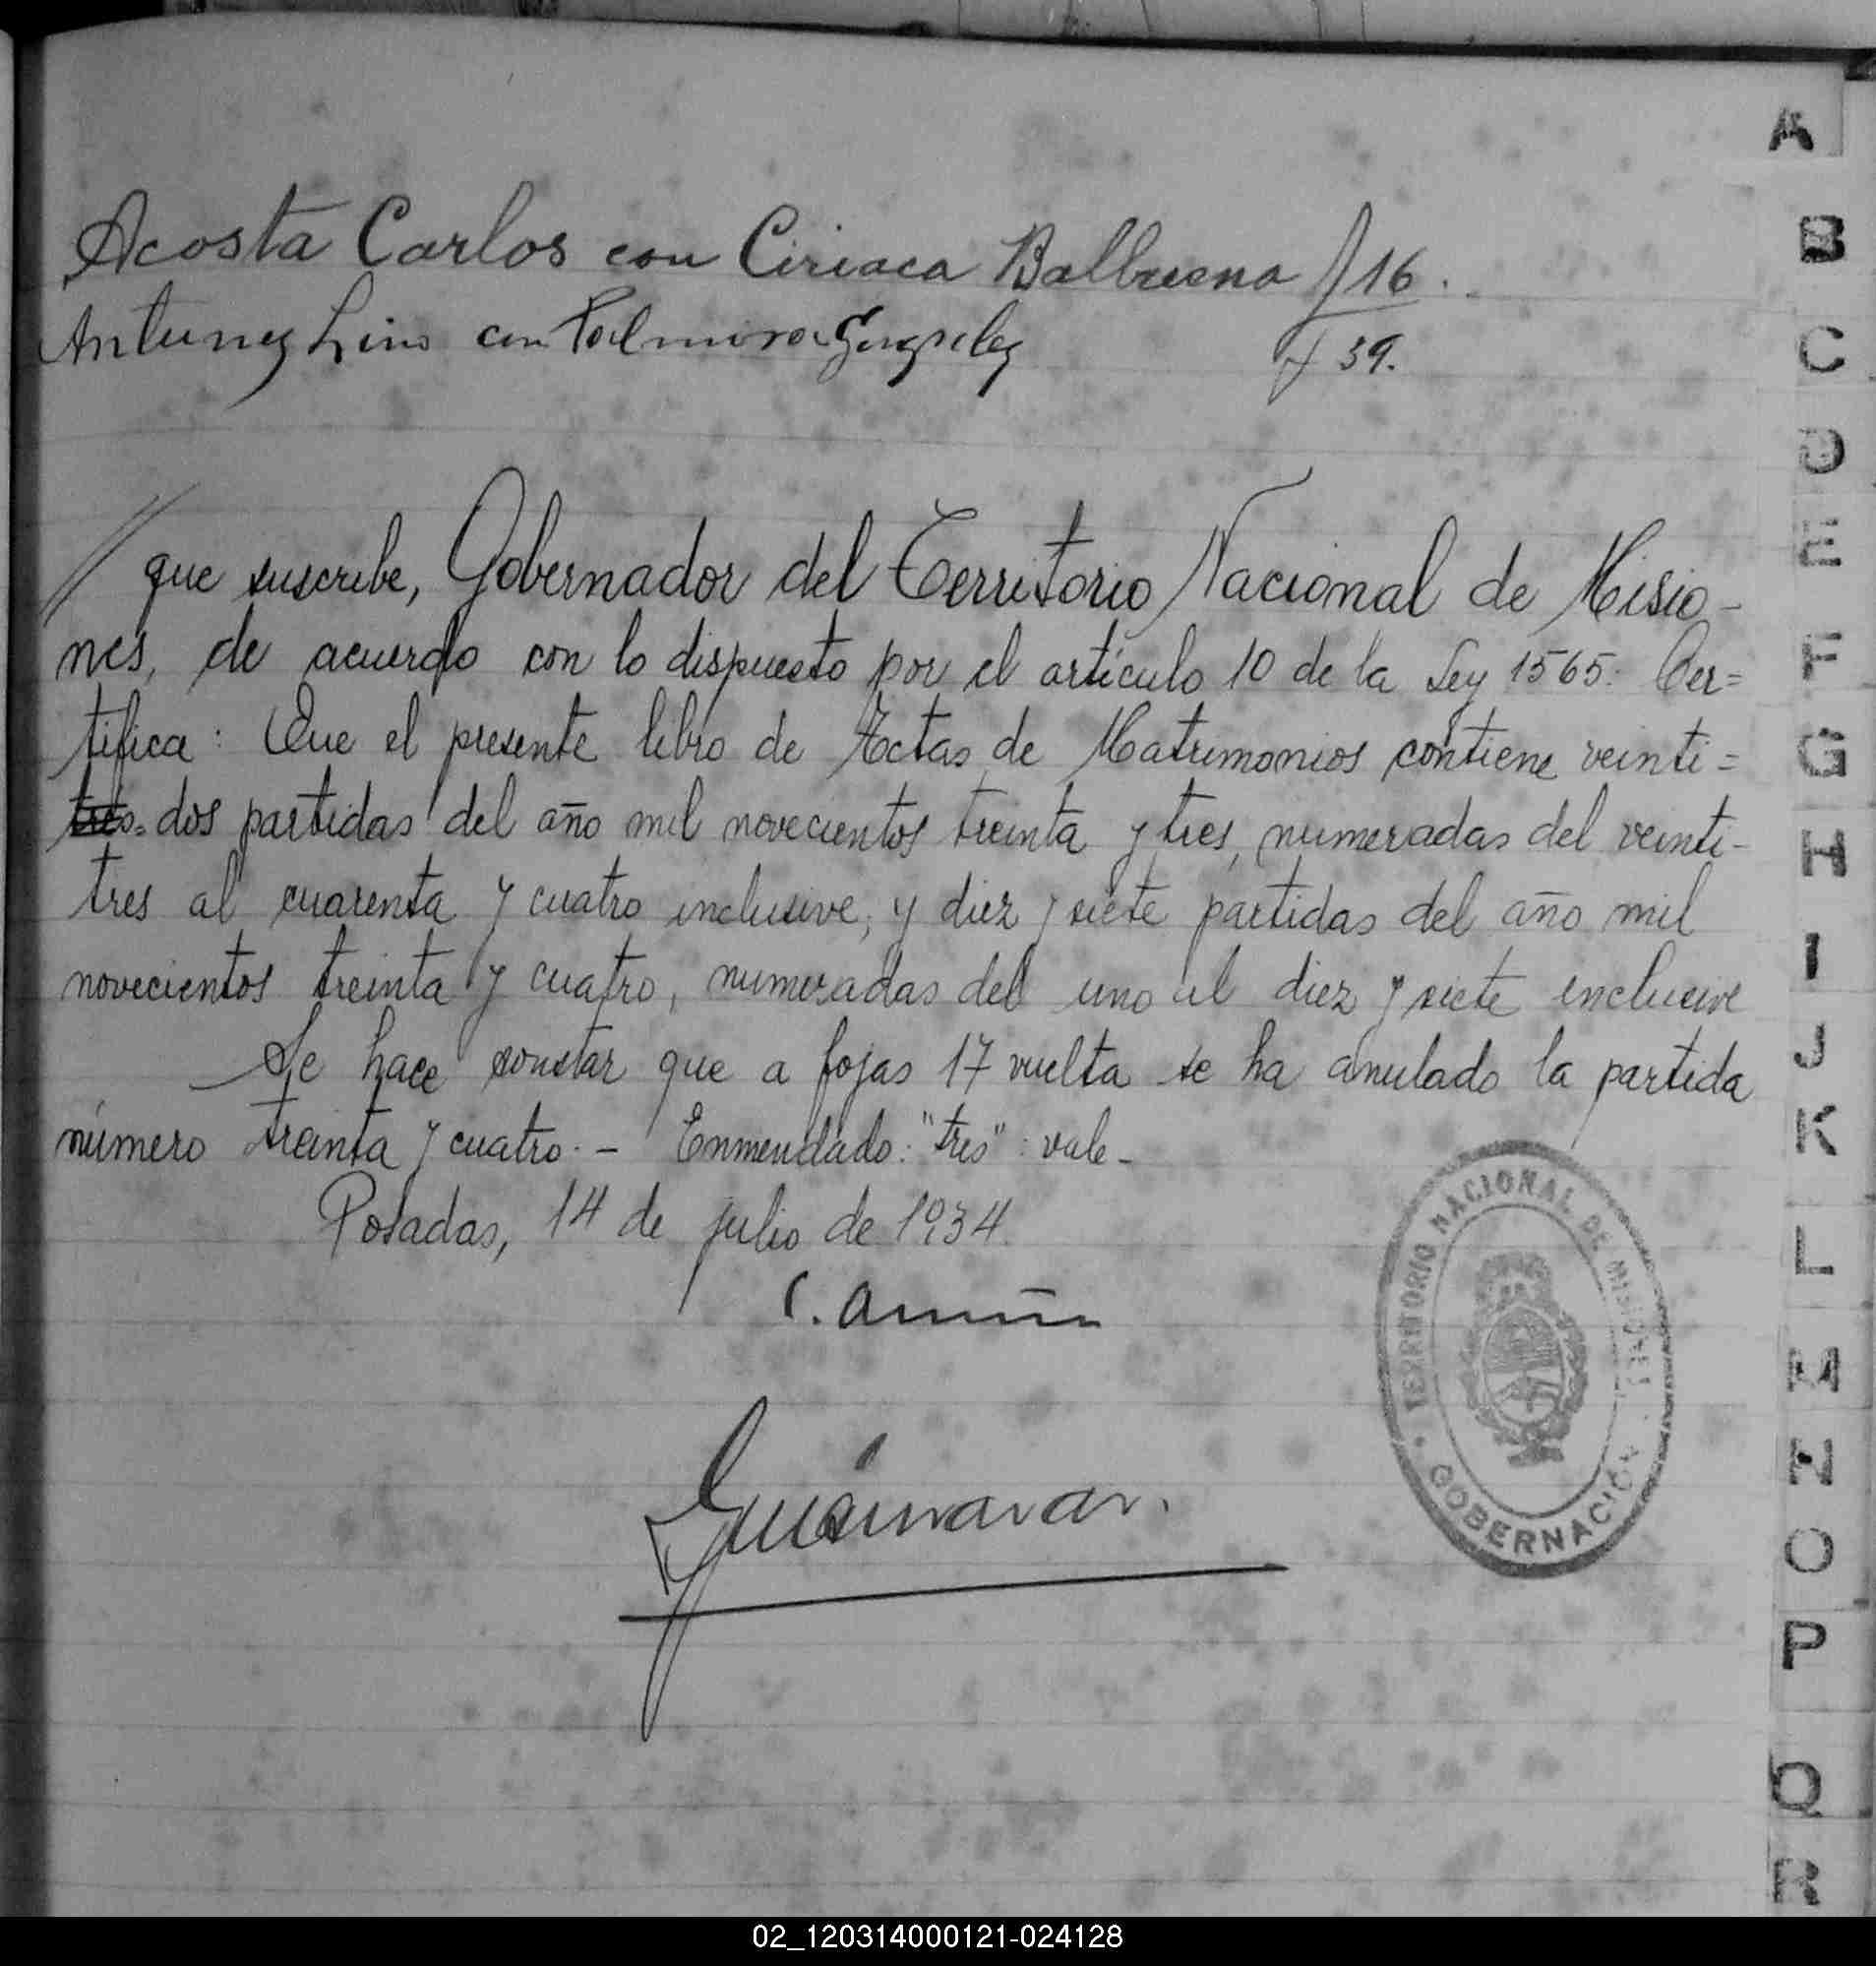 Acosta Carlos con Ciriaca Balbuena f 16.
Antunez Lino con Palmira Gonzalez f 39.
// que suscribe, Gobernador del Territorio Nacional de Misio-
nes, de acuerdo con lo dispuesto por el artículo 10 de la Ley 1565: Cer=
tifica: Que el presente libro de Actas de Matrimonios contiene veinti=
tres= dos partidas del año mil novecientos treinta y tres, numeradas del veinti-
tres al cuarenta y cuatro inclusive; y diez y siete partidas del año mil
novecientos treinta y cuatro, numeradas del uno al diez y siete inclusive
Se hace constar que a fojas 17 vuelta se ha anulado la partida
número treinta y cuatro.- Enmendado: "tres": vale-
Posadas, 14 de julio de 1934.
TERRITORIO NACIONAL DE MISIONES
GOBERNACIÓN
A
B
C
D
E
F
G
H
I
J
K
L
M
N
O
P
Q
R
02_120314000121-024128